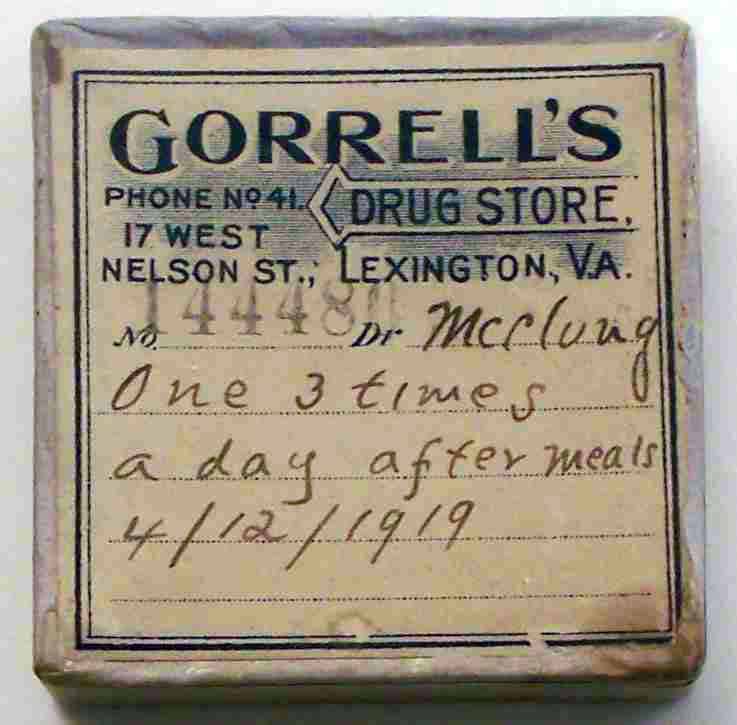 GORRELL'S
PHONE No 41. DRUG STORE.
17 WEST
NELSON ST., LEXINGTON, VA.
No. Dr McClung
One 3 times
a day after meals
4/12/1919